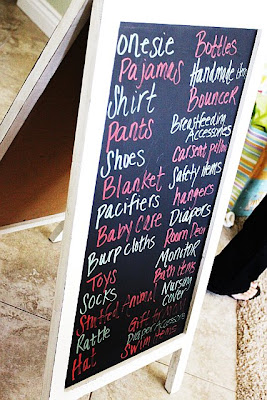 onesie
Pajamas
Shirt
Pants
Shoes
Blanket
Pacifiers
Baby Care
Burp cloths
Toys
Socks
Stuffed Animal
Rattle
Hat
Bottles
Handmade item
Bouncer
Breastfeeding
Accessories
Carseat pillow
Safety items
hangers
Diapers
Room Decor
Monitor
Bath items
Nursing
cover
Gift
Diaper Accessories
Swim items